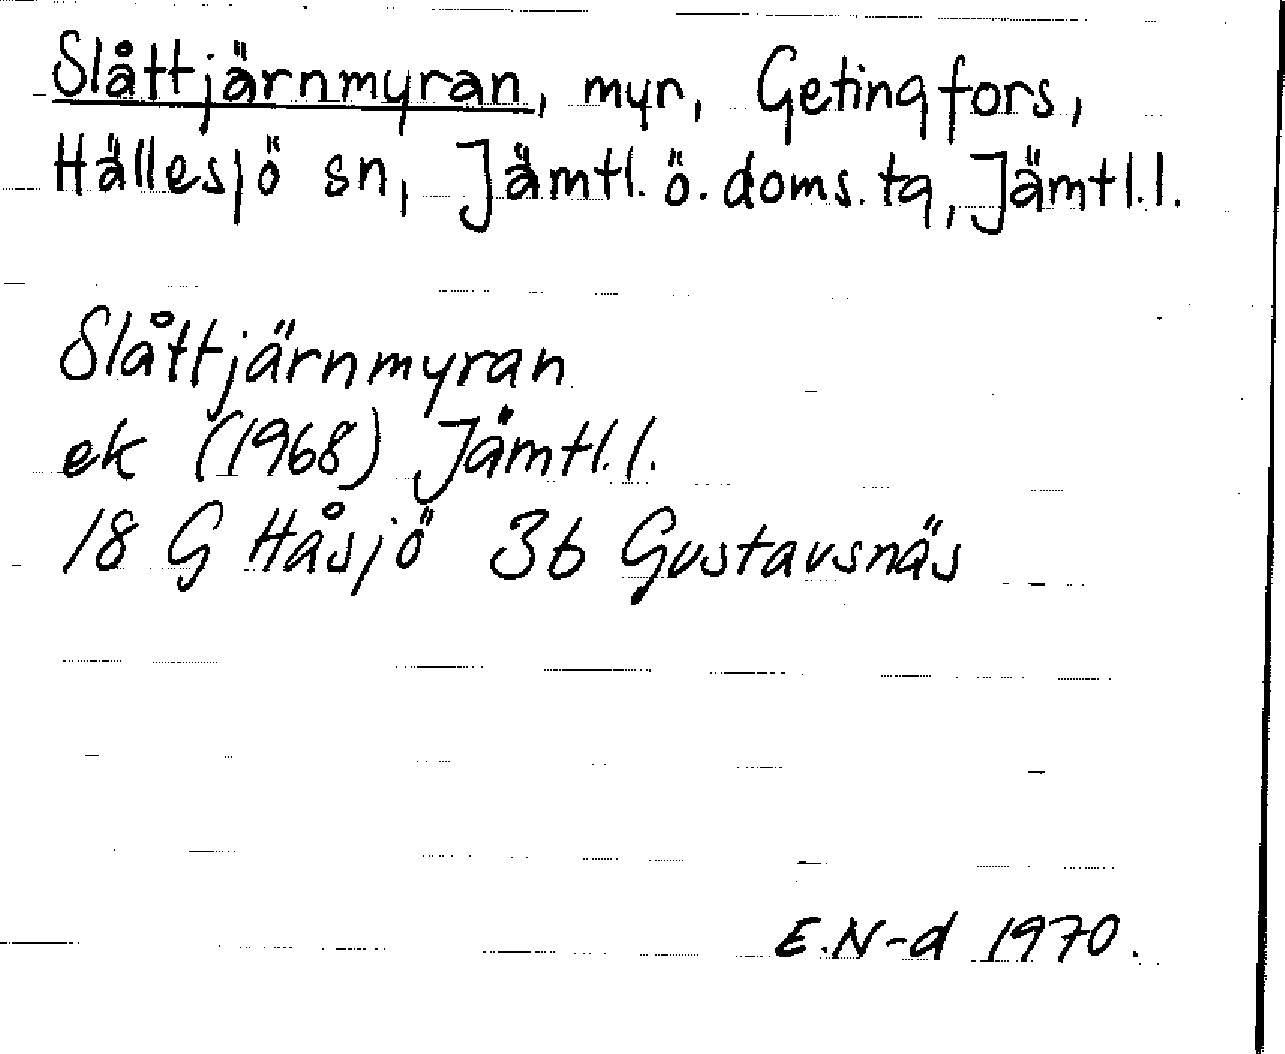 Slåttjärnmyran, myr, Getingfors,
Hällesjö sn, Jämtl. ö. doms. tg, Jämtl.l.
Slåttjärnmyran
ek (1968) Jämtl.l.
18 G Håsjö 3b Gustavsnäs
E.N-d 1970.